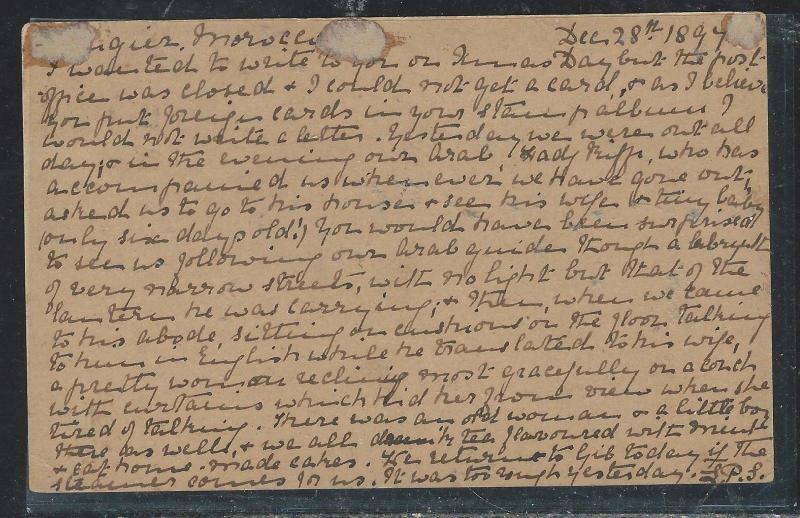 Tangier, Morocco Dec 28th 1897
I wanted to write to you on Xmas Day but the post
office was closed & I could not get a card, & as I believe
you put foreign cards in your stamp album I
would not write a letter. Yesterday we were out all
day; & in the evening our Arab, Hadj Riffi, who has
accompanied us whenever we have gone out,
asked us to go to his house & see his wife & tiny baby
(only six days old!) You would have been surprised
to see us following our Arab guide though a labrynth
of very narrow streets, with no light but that of the
lantern he was carrying; & then, when we came
to his abode, sitting on cushions on the floor talking
to him in English while he translated to his wife,
a pretty woman reclining most gracefully on a couch
with curtains which hid her from view when she
tired of talking. There was an old woman & a little boy
there as well, & we all drank tea flavoured with mint
& eat home-made cakes. We return to Gib today if the
steamer comes for us. It was too rough yesterday. S.P.S.